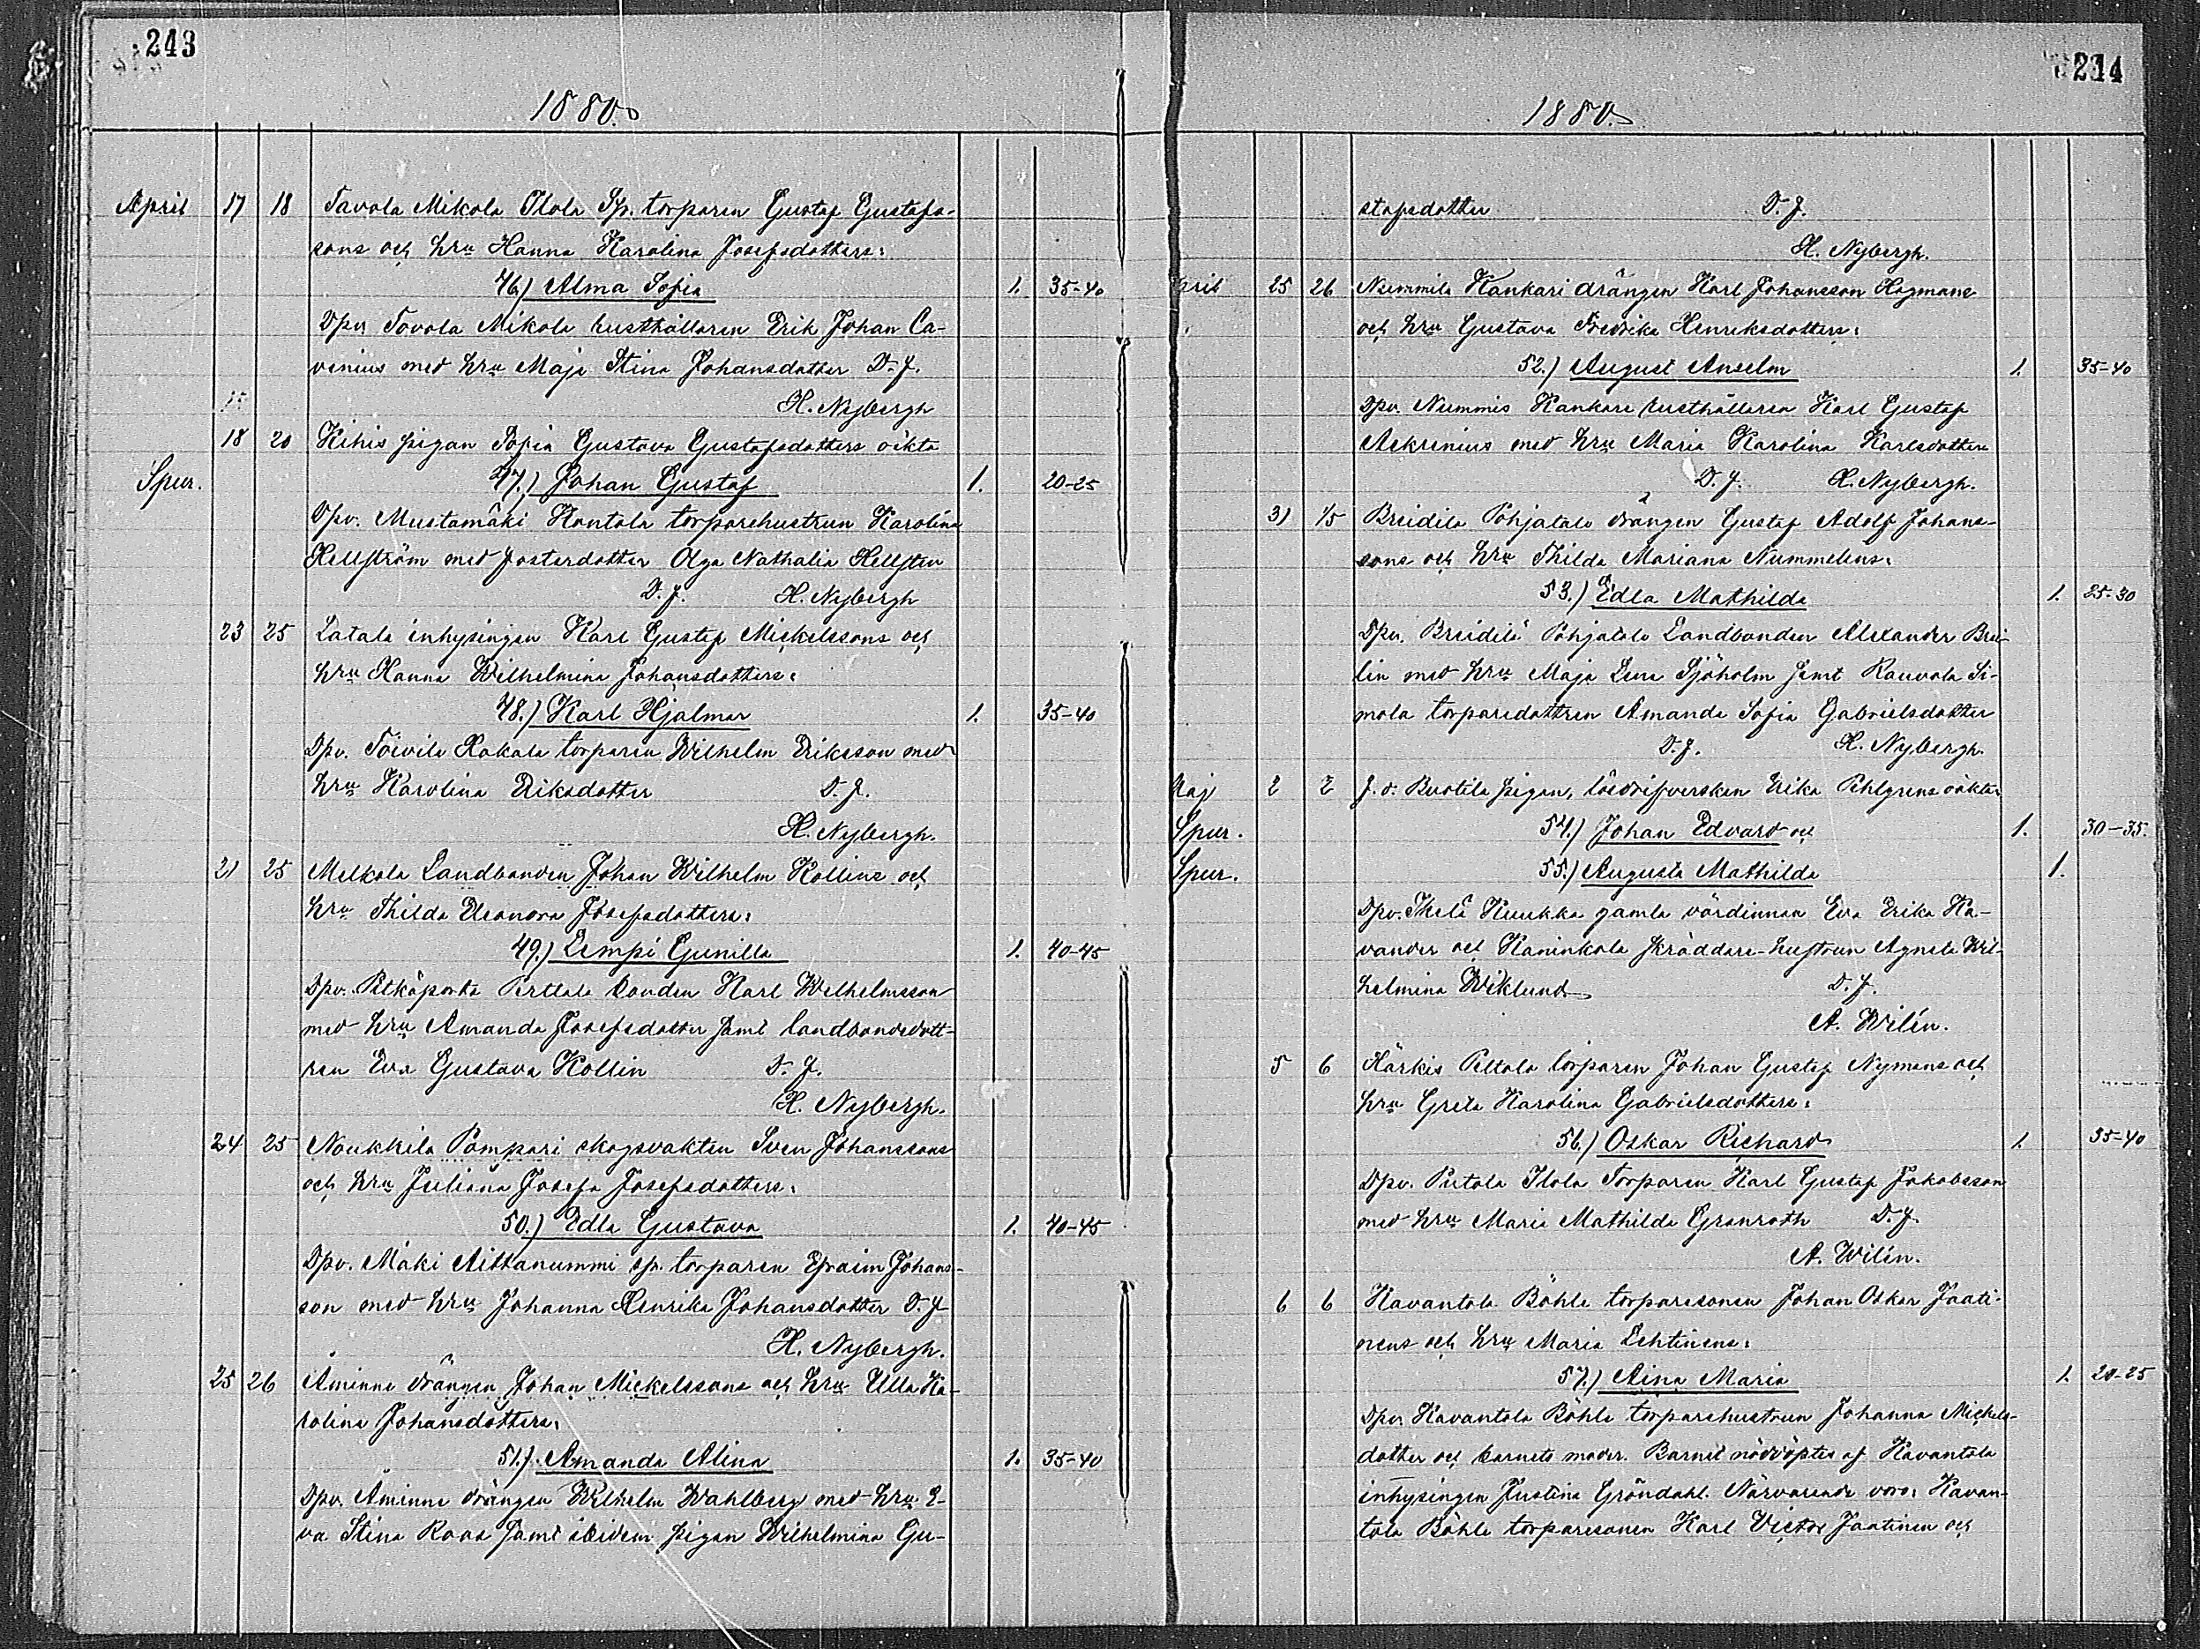 243
1880.
April 17 18 Tavola Mikola Ilola Sp. torparen Gustaf Gustafs-
sons och hru Hanna Karolina Josefsdotters:
46.) Alma Sofia 1. 35-40
Dpv. Tavola Mikola rusthållaren Erik Johan Ca-
venius med hru Maja Stina Johansdotter D. J.
H. Nybergh
18 20 Hihis pigan Sofia Gustava Gustafsdotters oäkta
Spur. 47.) Johan Gustaf 1. 20-25
Dpv. Mustamäki Kantola torparehustrun Karolina
Hellström med fosterdotter Olga Nathalia Hellsten
D. J. H. Nybergh
23 25 Latala inhysingen Karl Gustaf Mickelssons och
hru Hanna Wilhelmina Johansdotters:
48.) Karl Hjalmar 1. 35-40
Dpv. Toivila Kokala torparen Wilhelm Eriksson med
hru Karolina Eriksdotter D. J.
H. Nybergh.
21 25 Melkola Landbonden Johan Wilhelm Kollins och
hru Thilda Eleonora Josefsdotters:
49.) Lempi Gunilla 1. 40-45
Dpv. Pitkäporta Perttala bonden Karl Wilhelmsson
med hru Amanda Josefsdotter samt landbondedott-
ren Eva Gustava Kollin D. J.
H. Nybergh.
24 25 Noukkila Pämpäri skogsvakten Sven Johanssons
och hru Juliana Josefa Josefsdotters:
50.) Edla Gustava 1. 40-45
Dpv. Mäki Aittanummi sp. torparen Efraim Johans-
son med hru Johanna Henrika Johansdotter D. J.
H. Nybergh.
25 26 Åminne drängen Johan Mickelssons och hru Ulla Ka-
rolina Johansdotters:
51.) Amanda Alina 1. 35-40
Dpv. Åminne drängen Wilhelm Wahlberg med hru E-
va Stina Roos samt ibidem pigan Wilhelmina Gu-
244
1880.
stafsdotter D. J.
H. Nybergh.
April 25 26 Nummila Kankari drängen Karl Johansson Hagmans
och hru Gustava Fredrika Henriksdotters:
52.) August Anselm 1. 35-40
Dpv. Nummis Kankare rusthållaren Karl Gustaf
med hru Maria Karolina Karlsdotter
D. J. H. Nybergh.
31 1/5 Breidila Pohjatalo drängen Gustaf Adolf Johans-
sons och hru Thilda Mariana Nummelins:
53.) Edla Mathilda 1. 25-30
Dpv. Breidilä Pohjatalo Landbonden Alexander Brei-
lin med hru Maja Lena Sjöholm samt Rauvola Si-
mola torparedottren Amanda Sofia Gabrielsdotter
D. J. H. Nybergh.
Maj 2 2 f. d. Buotila pigan, lösdrifverskan Erika Pihlgrens oäkta
Spur. 54.) Johan Edvard och 1. 30-35.
Spur. 55.) Augusta Mathilda 1.
Dpv. Ihelä Kuukka gamla värdinnan Eva Erika Ka-
vander och Kaninkola skräddare-hustrun Agneta Wil-
helmina Wiklund D. J.
A. Wilén.
5 6 Härkis Peltola torparen Johan Gustaf Nymans och
hru Greta Karolina Gabrielsdotters:
56.) Oskar Richard 1. 35-40
Dpv. Pietola Ilola Torparen Karl Gustaf Jakobsson
med hru Maria Mathilda Granroth D. J.
A. Wilén.
6 6 Kavantola Böhle torparesonen Johan Oskar Jaati-
nens och hru Maria Lehtinens:
57.) Aina Maria 1. 20-25
Dpv. Kavantola Böhle torparehustrun Johanna Mickels-
dotter och barnets moder. Barnet nöddöptes af Kavantola
inhysingen Justina Gröndahl. Närvarande voro: Kavan-
tola Böhle torparesonen Karl Victor Jaatinen och